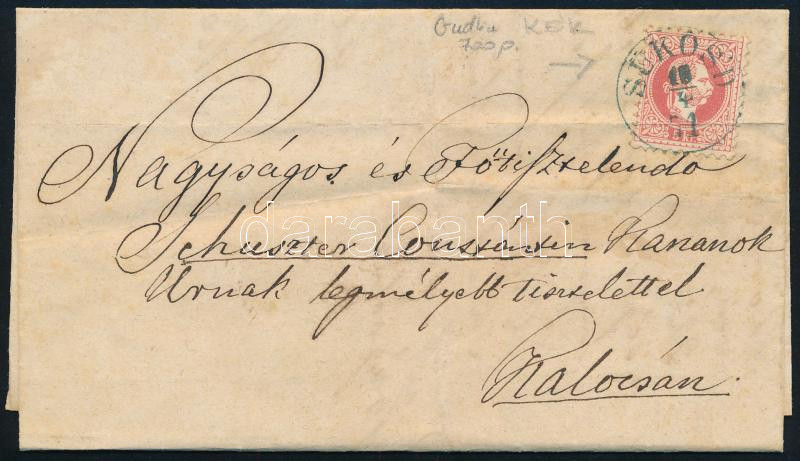 Gudlin KÉK
700 p.
SÜKÖSD
18
4
71
Nagyságos és Főtisztelendő
Schuszter Consztántin Kananok
Úrnak legmélyebb tisztelettel
Kalocsán.
darabanth